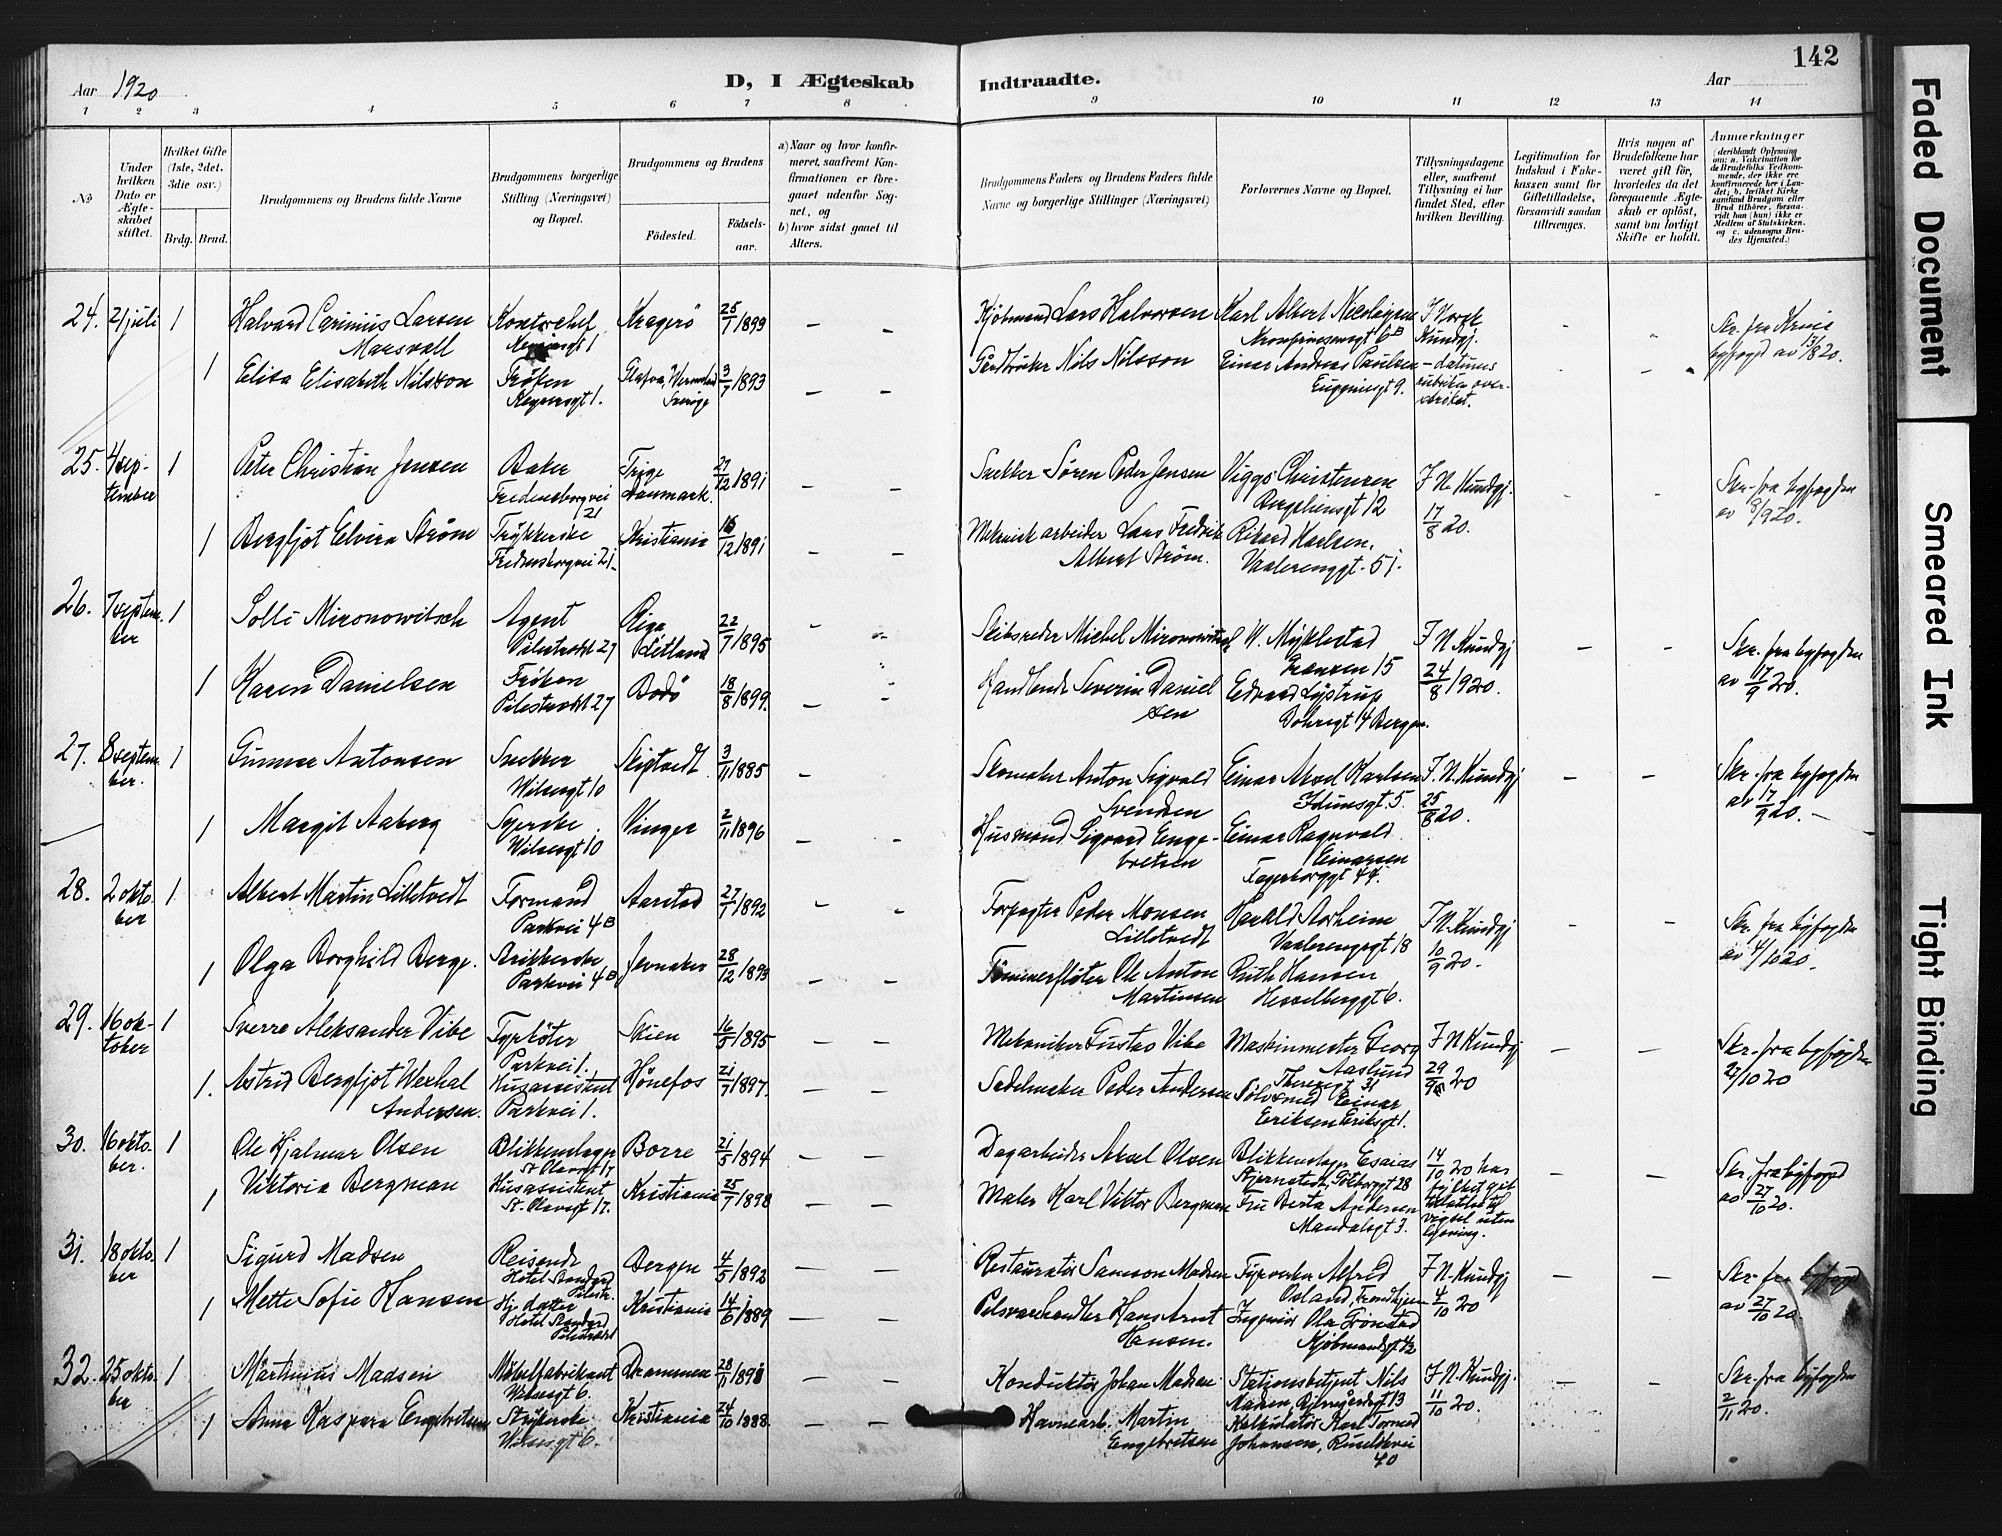 142
Aar 1920
D, I Ægteskab Indtraadte.
Aar
1 2 3 4 5 6 7 8 9 10 11 12 13 14
№
Under hvilken Dato er Ægteskabet stiftet.
Hvilket Gifte (1ste, 2det, 3die osv.)
Brdg. Brud.
Brudgommens og Brudens fulde Navne
Brudgommens borgerlige Stilling (Næringsvei) og Bopæl.
Brudgommens og Brudens
Fødested.
Fødselsaar.
a) Naar og hvor konfirmeret, saafremt Konfirmationen er foregaaet udenfor Sognet, og
b) hvor sidst gaaet til Alters.
Brudgommens Faders og Brudens Faders fulde Navne og borgerlige Stillinger (Næringsvei)
Forlovernes Navne og Bopæl.
Tillysningsdagene eller, saafremt Tillysning ei har fundet Sted, efter hvilken Bevilling.
Legitimation for Indskud i Enkekassen samt for Giftetilladelse, forsaavidt saadan tiltrænges.
Hvis nogen af Brudefolkene har været gift før, hvorledes da det foregaaende Ægteskab er opløst, samt om lovligt Skifte er holdt.
Anmærkninger
(deriblandt Oplysning om: a. Vakcination for de Brudefolks Vedkommende, der ikke ere konfirmerede her i Landet; b. hvilket Kirkesamfund Brudgom eller Brud tilhører, forsaavidt han (hun) ikke er Medlem af Statskirken, og c. udensogns Brudes Hjemsted.)
24. 21 juli 1 Halvard Carinius Larsen Marsvall Kontorchef Keysersgt 1 Kragerö 25/7 1899 – – Kjöbmand Lars Halvorsen Karl Albert Nicolaysen Kronprinsensgt 6B I Norsk Kundgj. – datums rubriken overströket.
Skr. fra byfogd av 13/8 20.
1 Elisa Elisabeth Nilsson Fröken Keysersgt 1. Glafva, Wermland Sverige 3/7 1893 – – Gårdbruker Nils Nilsson Einar Andreas Paulsen Euggeniesgt 9.
25. 4 september 1 Peter Christian Jensen Baker Fredensborgvei 21 Trige Danmark. 27/12 1891 – – Snekker Sören Peder Jensen Viggo Christensen Bergsliensgt 12 I N. Kundgj. 17/8 20.
Skr. fra byfogden av 8/9 20.
1 Bergljot Elvira Ström Trykkerske Fredensborgvei 21. Kristiania 16/12 1891 – – Mekanisk arbeider Lars Fredrik Albert Ström. Rikard Karlsen, Vaalerenggt. 51.
26. 7 september 1 Solli Mironowitsch Agent Pilestrædet 27 Riga Letland 22/7 1895 – Skibsreder Michel Mironowitsch W. Myklestad Grensen 15 I N. Kundgj 24/8 1920. – –
Skr. fra byfogden av 17/9 20.
1 Karen Danielsen Fröken Pilestrædet 27 Bodö 18/8 1899. – – Handlende Severin Danielsen Edvard Lystrup Dokeegt 14 Bergen.
27. 8 september. 1 Gunnar Antonsen Snekker Wilsesgt 10 Skiptvedt 3/11 1885 – Skomaker Anton Sigvald Svendsen Einar Aksel Karlsen Idunsgt. 5. I. N. Kundgj 25/8 20. – –
Skr. fra byfogden av 17/9 20. –
1 Margit Aaberg Syerske Wilsesgt 10 Vinger 2/11 1896 – – Husmand Sigvard Engebretsen Einar Ragnvald Einarsen Fagerborggt 44.
28. 2 oktober 1 Albert Martin Lilletvedt Formand Parkvei 4B Aarstad 27/7 1892 – – Forpagter Peder Monsen Lilletvedt Harald Aarheim Vaalerenggt 18 I N. Kundgj 10/9 20. – –
Skr. fra byfogden av 4/10 20.
1 Olga Borghild Berge. Strikkerske Parkvei 4B Jevnaker 28/12 1893 – – Tömmerflöter Ole Anton Martinsen Ruth Hansen Hesselberggt 6.
29. 16 oktober 1 Sverre Aleksander Vibe Fyrböter Parkvei 1. Skien 16/5 1895 – – Mekaniker Gustav Vibe Maskinmester Georg Aaslund Theresegt 31 I N Kundgj 29/9 20 – –
Skr. fra byfogden 22/10 20
1. Astrid Bergljot Werhal Andersen. Husassistent Parkvei 1. Hönefos 21/7 1897. – – Sadelmaker Peder Andersen Sölvsmed Einar Eriksen Eriksgt 1.
30. 16 oktober. 1 Ole Hjalmar Olsen Blikkenslager St Olavsgt 17 Borre 21/5 1894 – – Dagarbeider Aksel Olsen Blikkenslager Esaias Stjernstedt, Götborggt 28 14/10 20 har fylket git tilladelse til vigsel uten lysning. – –
Skr. fra byfogd av 27/10 20.
1 Viktoria Bergman Husassistent St. Olavsgt 17. Kristiania 25/7 1898 – – Maler Karl Viktor Bergman Fru Berta Andersen Mandalsgt 3.
31. 18 oktober 1 Sigurd Madsen Reisende Hotel Standard Pilestr. Bergen 4/5 1892 – – Restauratör Samson Madsen Fyrverker Alfred Osland, Trondhjem I N. Kundgj 4/10 20 – –
Skr. fra byfogd av 27/10 20.
1 Mette Sofie Hansen Hj. datter Hotel Standard Pilestrædet Kristiania 14/6 1889 – – Pelsvarehandler Hans Arnt Hansen. Ingeniör Ola Grönstad Kjöbmandsgt 12
32. 25 oktober 1 Martinius Madsen Möbelfabrikant Wilsesgt 6. Drammen 28/11 1891 – – Konduktör Johan Madsen Stationsbetjent Nils Madsen I N. Kundgj. 11/10 20. – –
Skr. fra byfogden 2/11 20.
1 Anna Kaspara Engebretsen Strykerske Wilsesgt 6. Kristiania 24/10 1888. – – Havnearb. Martin Engebretsen Kalkulatör Karl Tormod Johansen, Ruselökvei 40
Faded Document
Smeared Ink
Tight Binding